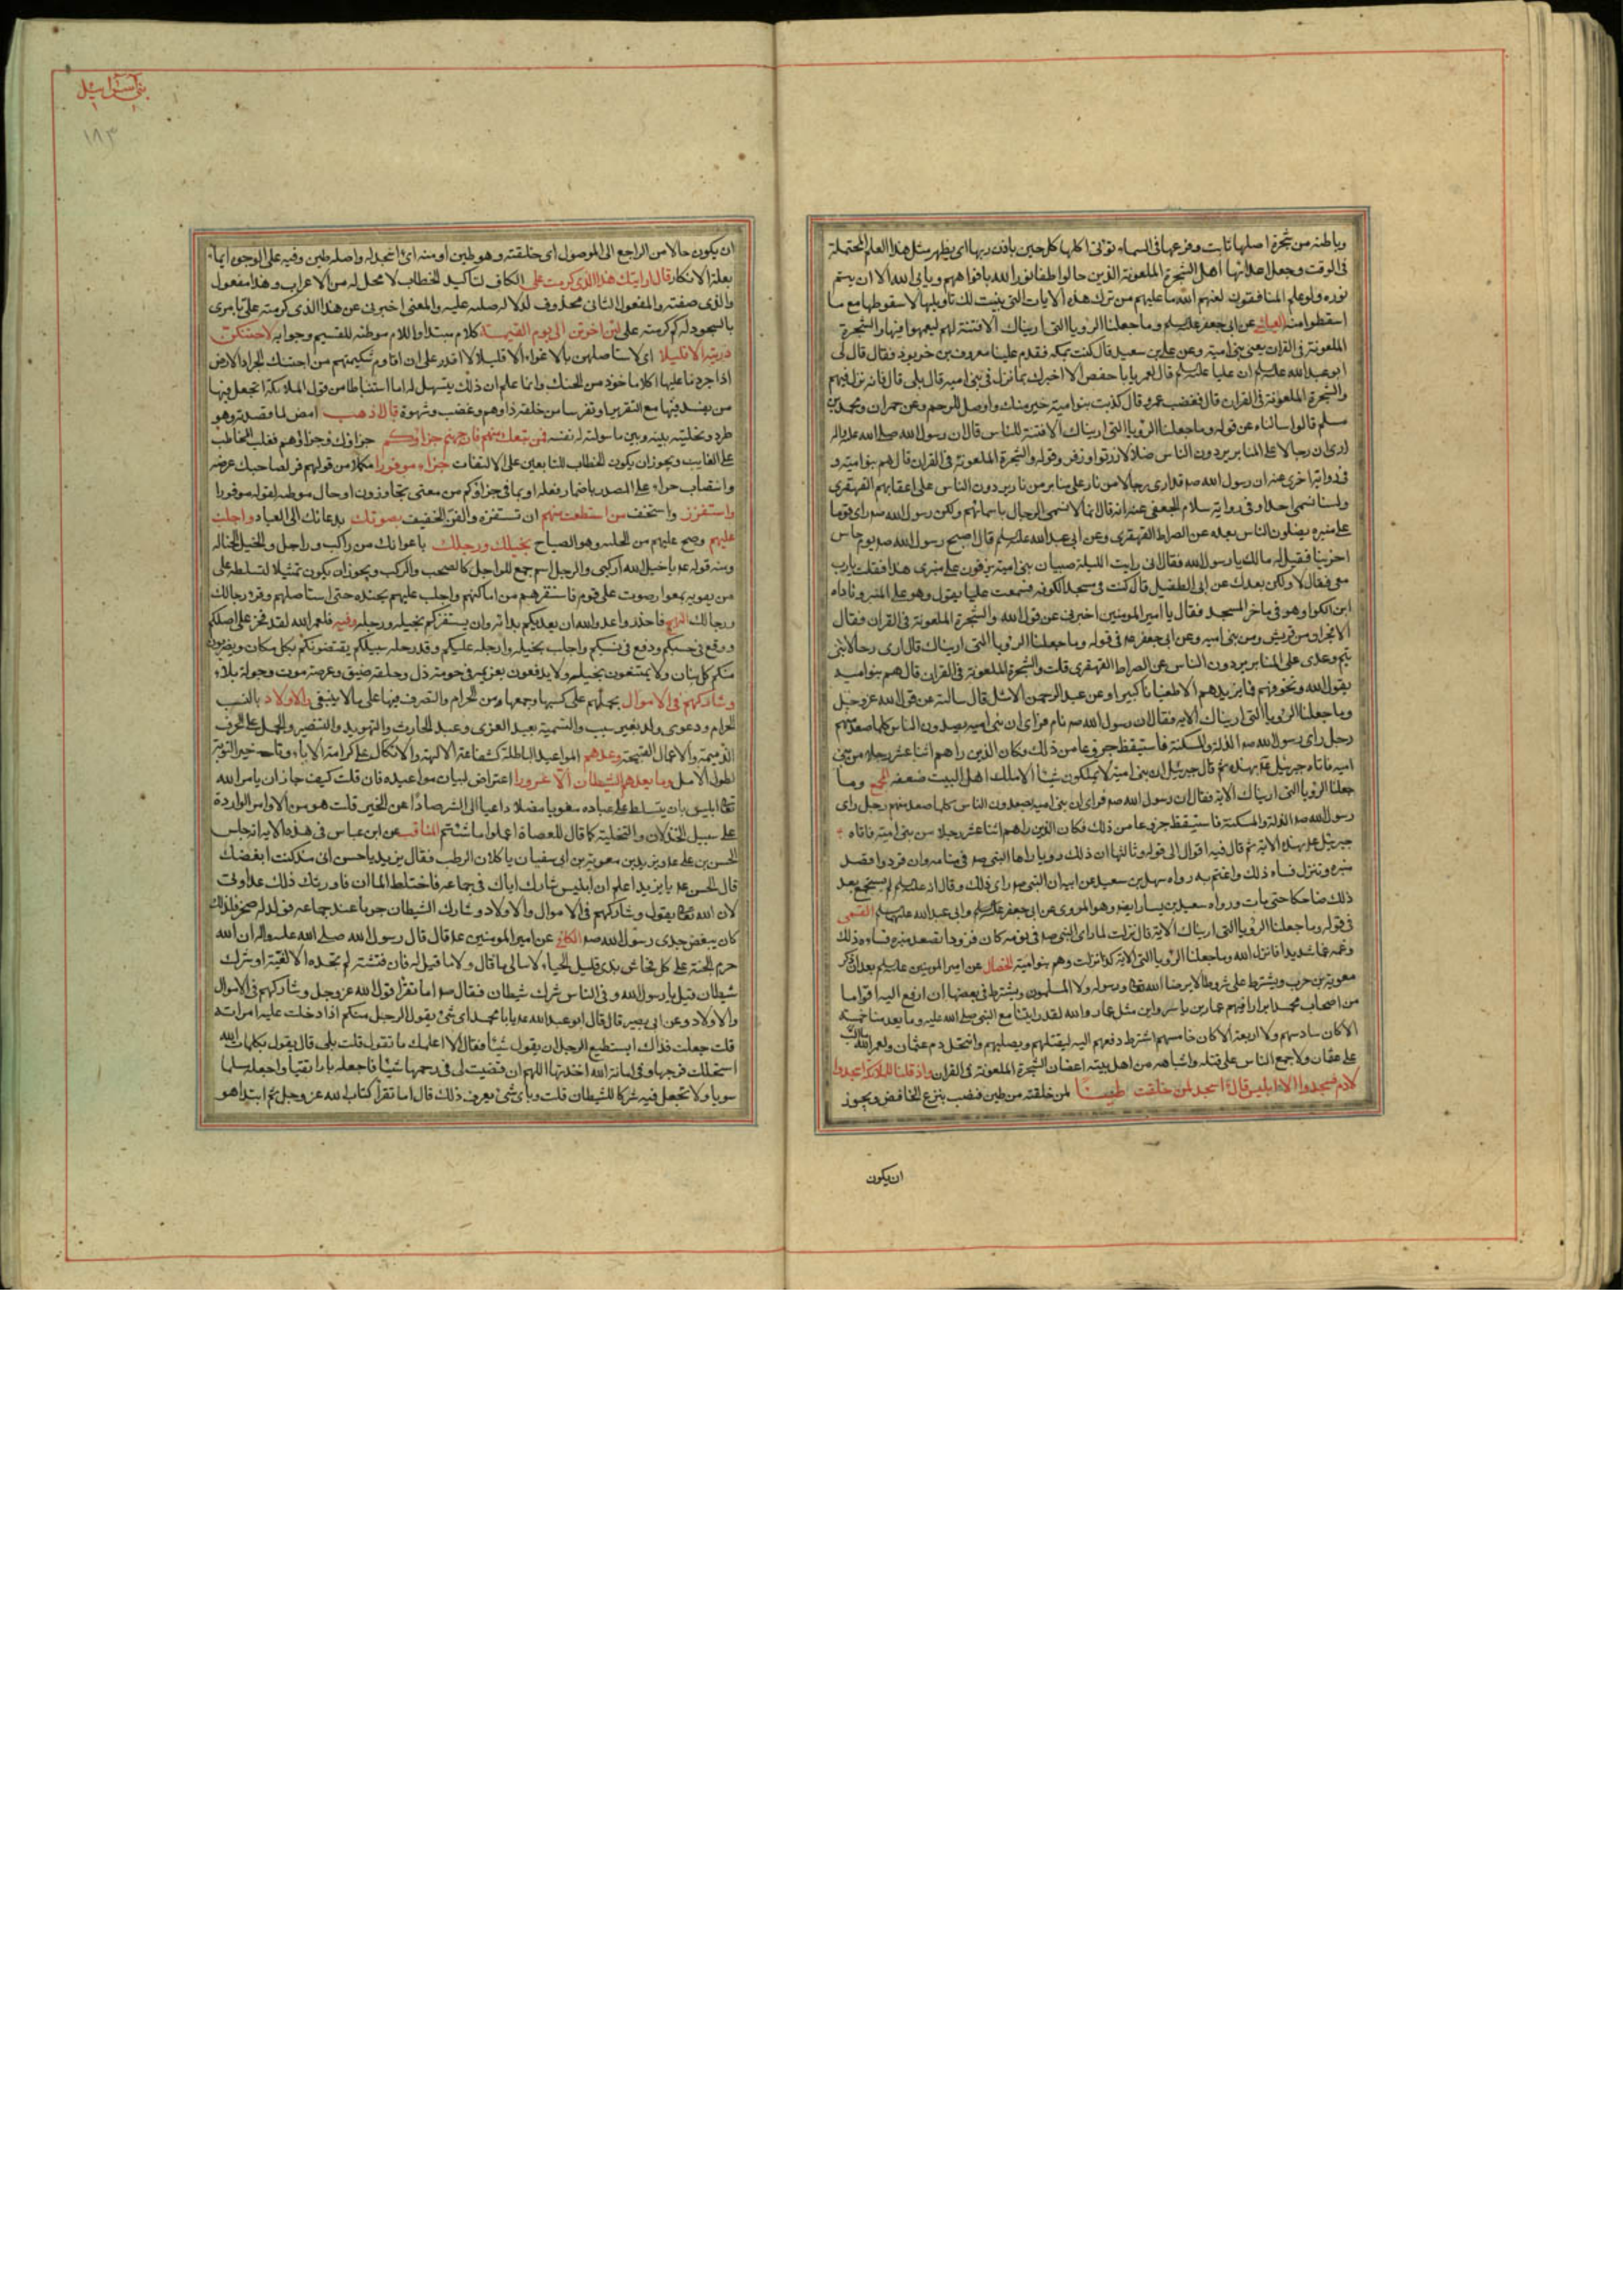 وباطنه من شجرة اصلها ثابت وفرعها فى السماء تؤتى اكلها كل حين باذن ربها اى يظهر مثل هذا العلم لمحتمله
فى الوقت وجعل اعدائها اهل الشجرة الملعونة الذين حاولوا اطفاء نور الله بافواههم ويابى الله الا ان يتم
نوره ولو علم المنافقون لعنهم الله ما عليهم من ترك هذه الايات التى بينت لك تاويلها لاسقوطها مع ما
اسقطوا منه العياشى عن ابى جعفر عليه السلم وما جعلنا الرؤيا التى اريناك الا فتنة لهم ليعمهوا فيها والشجرة
الملعونة فى القران يعنى بنى امية وعن على بن سعيد قال كنت بمكة فقدم علينا معروف بن خربوذ فقال قال لى
ابو عبد الله عليه السلم ان عليا عليه السلم قال لعمر يا با حفص الا اخبرك بما نزل فى بنى امية قال بلى قال فانه نزل فيهم
والشجرة الملعونة فى القران قال فغضب عمر وقال كذبت بنو امية خير منك واوصل للرحم وعن حمران ومحمد بن
مسلم قالوا سالناه عن قوله وما جعلنا الرؤيا التى اريناك الا فتنة للناس قال ان رسول الله صلى الله عليه واله
ارى ان رجالا على المنابر يردون الناس ضلالا زريق وزفر وقوله والشجرة الملعونة فى القران قال هم بنو امية و
فى رواية اخرى عنه ان رسول الله صم قد ارى رجالا من نار على منابر من نار يردون الناس على اعقابهم القهقرى
ولسنا نسمى احدا وفى رواية سلام الجعفى عنه انه قال انا لا نسمى الرجال باسمائهم ولكن رسول الله صم راى قوما
على منبره يضلون الناس بعده عن الصراط القهقرى وعن ابى عبد الله عليه السلم قال اصبح رسول الله صم يوما حاسرا
حزينا فقيل له مالك يا رسول الله فقال انى رايت الليلة صبيان بنى امية يرقون على منبرى هذا فقلت يا رب
معى فقال لا ولكن بعدك عن ابى الطفيل قال كنت فى مسجد الكوفة فسمعت عليا يقول وهو على المنبر وناداه
ابن الكوا وهو فى مؤخر المسجد فقال يا امير المؤمنين اخبرنى عن قول الله والشجرة الملعونة فى القران فقال
الافجران من قريش ومن بنى امية وعن ابى جعفر عم فى قوله وما جعلنا الرؤيا التى اريناك قال ارى رجالا من بنى
تيم وعدى على المنابر يردون الناس عن الصراط القهقرى قلت والشجرة الملعونة فى القران قال هم بنو امية
يقول الله ونخوفهم فما يزيدهم الا طغيانا كبيرا وعن عبد الرحمن الاشل قال سالته عن قول الله عز وجل
وما جعلنا الرؤيا التى اريناك الاية فقال ان رسول الله صم نام فراى ان بنى امية يصعدون المنابر كلما صعد منهم
رجل راى رسول الله صم الذلة والمسكنة فاستيقظ جزوعا من ذلك وكان الذين راهم اثنا عشر رجلا من بنى
امية فاتاه جبرئيل عم بهذه ثم قال جبرئيل ان بنى امية لا يملكون شيئا الا ملك اهل البيت ضعفه المجمع وما
جعلنا الرؤيا التى اريناك الاية فقال ان رسول الله صم فراى ان بنى امية يصعدون الناس كلما صعد منهم رجل راى
رسول الله صم الذلة والمسكنة فاستيقظ جزوعا من ذلك فكان الذين راهم اثنا عشر رجلا من بنى امية فاتاه
جبرئيل عم بهذه الاية ثم قال فيه اقوال الى قوله وثالثها ان ذلك رؤيا راها النبى صم فى منامه وان قرودا تصعد
منبره وتنزل فساءه ذلك واغتم به رواه سهل بن سعيد عن ابيه ان النبى صم راى ذلك وقال انه عليه السلم لم يستجمع بعد
ذلك ضاحكا حتى مات ورواه سعيد بن يسار ايضا وهو المروى عن ابى جعفر عليه السلم وابى عبد الله عليهما السلم القمى
فى قوله وما جعلنا الرؤيا التى اريناك الاية قال نزلت لما راى النبى صم فى نومه كان قرودا تصعد منبره فساءه ذلك
وغمه غما شديدا فانزل الله وما جعلنا الرؤيا التى الاية كذا نزلت وهم بنو امية الخصال عن امير المومنين عليه السلم بعد ان ذكر
معوية بن حرب ويشترط على شروطا لا يرضاها الله تعالى ورسوله ولا المسلمون ويشترط فى بعضها ان ارفع اليه اقواما
من اصحاب محمد ابرارا فيهم عمار بن ياسر واين مثل عمار والله لقد رايتنا مع النبى صلى الله عليه وما يعد منا خمسة
الا كان سادسهم ولا اربعة الا كان خامسهم اشترط دفعهم اليه ليقتلهم ويصلبهم وانتحل دم عثمان ولعمر الله ما الب
على عثمان ولا جمع الناس على قتله الا واشباهه من اهل بيته اغصان الشجرة الملعونة فى القران واذ قلنا للملائكة اسجدوا
لادم فسجدوا الا ابليس قال ءاسجد لمن خلقت طينا لمن خلقته من طين فنصب بنزع الخافض ويجوز
ان يكون
بنى اسرائيل
١٨٣
ان يكون حالا من الراجع الى الموصول اى خلقته وهو طين او منه اى ءاسجد له واصله طين وفيه على الوجوه ايماء
بعلة الانكار قال ارايتك هذا الذى كرمت على الكاف لتاكيد الخطاب لا محل له من الاعراب وهذا مفعول
والذى صفته والمفعول الثانى محذوف لدلالة صلته عليه والمعنى اخبرنى عن هذا الذى كرمته على بامرى
بالسجود له لم كرمته على لئن اخرتن الى يوم القيمة كلام مبتدا واللام موطئة للقسم وجوابه لاحتنكن
ذريته الا قليلا اى لاستاصلنهم بالاغواء الا قليلا لا اقدر على ان اقاوم شكيمتهم من احتنك الجراد الارض
اذا جرد ما عليها اكلا ماخوذ من الحنك وانما علم ان ذلك يتسهل له اما استنباطا من قول الملائكة اتجعل فيها
من يفسد فيها مع التقرير او تفرسا من خلقه ذا وهم وغضب وشهوة قال اذهب امض لما قصدته وهو
طرد وتخلية بينه وبين ما سولت له نفسه فمن تبعك منهم فان جهنم جزاؤكم جزاؤك وجزاؤهم فغلب المخاطب
على الغايب ويجوز ان يكون الخطاب للتابعين على الالتفات جزاء موفورا مكملا من قولهم فر لصاحبك عرضه
وانتصاب جزاء على المصدر باضمار فعله او بما فى جزاؤكم من معنى تجازون او حال موطئة لقوله موفورا
واستفزز واستخف من استطعت منهم ان تستفزه والفز الخفيف بصوتك بدعائك الى الفساد واجلب
عليهم وصح عليهم من الجلبة وهو الصياح بخيلك ورجلك باعوانك من راكب وراجل والخيل الخيالة
ومنه قوله عم يا خيل الله اركبى والرجل اسم جمع للراجل كالصحب والركب ويجوز ان يكون تمثيلا لتسلطه على
من يغويه بمغوار صوت على قوم فاستفزهم من اماكنهم واجلب عليهم بجنده حتى استاصلهم وقرئ رجالك
ورجالك النهج فاحذروا عدو الله ان يعديكم بدائه وان يستفزكم بخيله ورجله وفيه فلعمر الله لقد فخر على اصلكم
ووقع فى حسبكم ودفع فى نسبكم واجلب بخيله ورجله عليكم وقدر جله سبيلكم يقتنصونكم بكل مكان ويضربون
منكم كل بنان ولا يمتنعون بحيلة ولا يدفعون بعزيمة فى حومة ذل وحلقة ضيق وعرصة موت وجولة بلاء
وشاركهم فى الاموال بحملهم على كسبها وجمعها من الحرام والتصرف فيها على ما لا ينبغى والاولاد بالنسب
الحرام ودعوى ولد بغير سبب والتسمية بعبد العزى وعبد الحارث والتهويد والتنصير والحمل على الحرف
الذميمة والاعمال القبيحة وعدهم المواعيد الباطلة كشفاعة الالهة والاتكال على كرامة الاباء وتاخير التوبة
لطول الامل وما يعدهم الشيطان الا غرورا اعتراض لبيان مواعيده فان قلت كيف جاز ان يامر الله
تعالى ابليس بان يتسلط على عباده مغويا مضلا داعيا الى الشر صادا عن الخير قلت هو من الاوامر الواردة
على سبيل الخذلان والتخلية كما قال للعصاة اعملوا ما شئتم المناقب عن ابن عباس فى هذه الاية انه جلس
الحسن بن على عم ويزيد بن معوية بن ابى سفيان ياكلان الرطب فقال يزيد يا حسن انى منذ كنت ابغضك
قال الحسن عم يا يزيد اعلم ان ابليس شارك اباك فى جماعه فاختلط الماان فاورثك ذلك عداوتى
لان الله تعالى يقول وشاركهم فى الاموال والاولاد وشارك الشيطان حربا عند جماعه فولد له صخر فلذلك
كان يبغض جدى رسول الله صم الكافى عن امير المومنين عم قال قال رسول الله صلى الله عليه واله ان الله
حرم الجنة على كل فحاش بذى قليل الحياء لا يبالى ما قال ولا ما قيل له فان فتشته لم تجده الا لغية او شرك
شيطان قيل يا رسول الله وفى الناس شرك شيطان فقال صم اما تقرا قول الله عز وجل وشاركهم فى الاموال
والاولاد وعن ابى بصير قال قال ابو عبد الله عم يابا محمد اى شئ يقول الرجل منكم اذا دخلت عليه امراته
قلت جعلت فداك ايستطيع الرجل ان يقول شيئا فقال الا اعلمك ما تقول قلت بلى قال يقول بكلمات الله
استحللت فرجها وفى امانة الله اخذتها اللهم ان قضيت لى فى رحمها شيئا فاجعله بارا تقيا واجعله مسلما
سويا ولا تجعل فيه شركا للشيطان قلت وباى شئ يعرف ذلك قال اما تقرا كتاب الله عز وجل ثم ابتدا هو